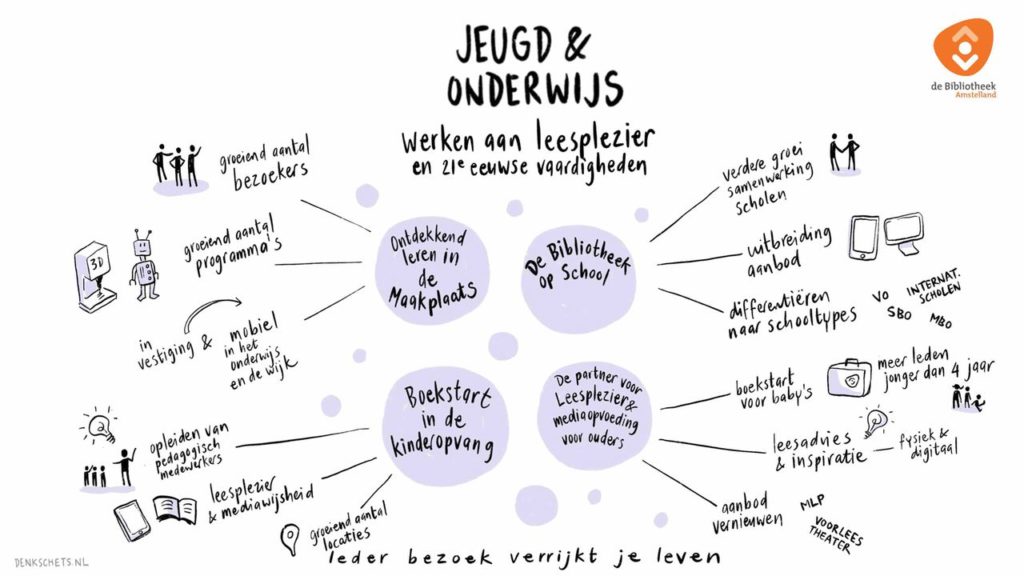 JEUGD &
ONDERWIJS
werken aan leesplezier
en 21e eeuwse vaardigheden
de Bibliotheek
Amstelland
groeiend aantal
bezoekers
groeiend aantal
programma's
3D
in
vestiging &
mobiel
in het
onderwijs
en de wijk
Ontdekkend
leren in
de
Maakplaats
De Bibliotheek
op School
verdere groei
samenwerking
scholen
uitbreiding
aanbod
differentiëren
naar schooltypes
VO
INTERNAT.
SCHOLEN
SBO
MBO
Boekstart
in de
kinderopvang
opleiden van
pedagogisch
medewerkers
leesplezier
& mediawijsheid
groeiend aantal
locaties
De partner voor
Leesplezier &
mediaopvoeding
voor ouders
boekstart
voor baby's
meer leden
jonger dan 4 jaar
leesadvies
& inspiratie
fysiek &
digitaal
aanbod
vernieuwen
MLP
VOORLEES
THEATER
Ieder bezoek verrijkt je leven
DENKSCHETS.NL